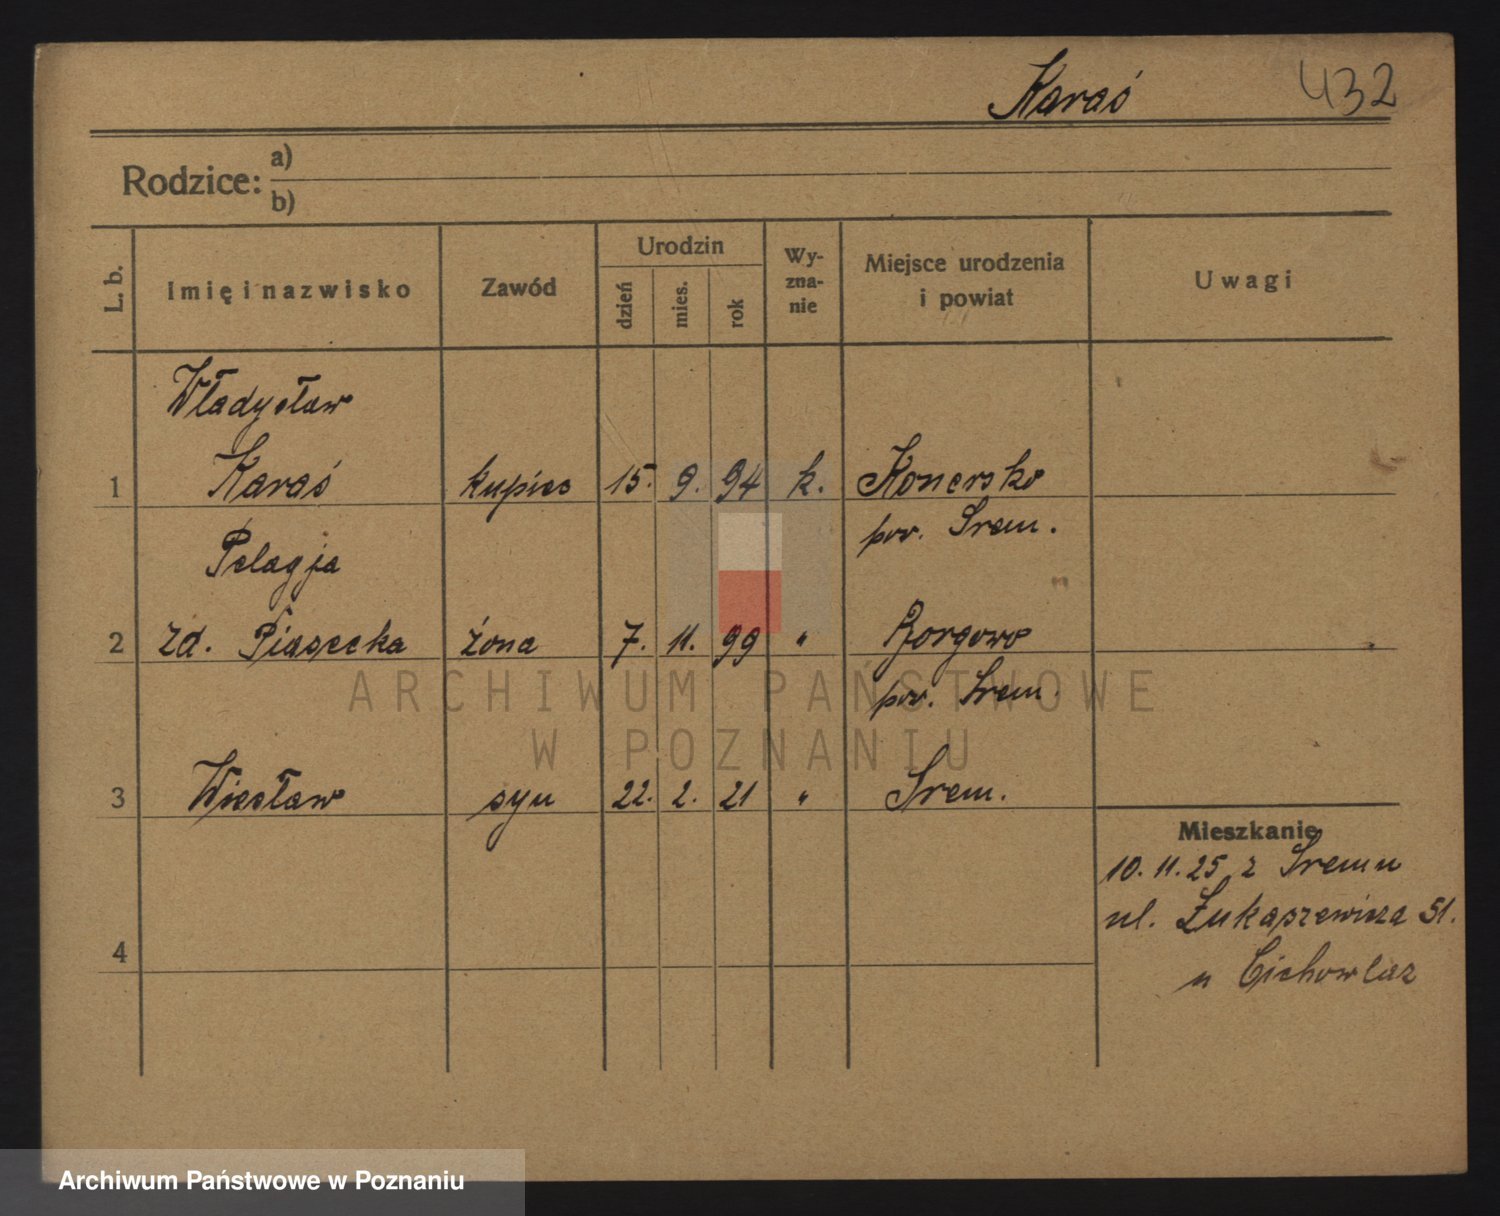 Karaś 432
Rodzice: a)
b)
L. b. Imię i nazwisko Zawód Urodzin dzień mies. rok Wy-zna-nie Miejsce urodzenia i powiat Uwagi
Władysław
1 Karaś kupiec 15. 9. 94 k. Konersko
pow. Śrem.
Pelagja
2 zd. Piasecka żona 7. 11. 99 " Borgowo
pow. Śrem.
3 Wiesław syn 22. 2. 21 " Śrem.
Mieszkanie
10. 11. 25 z Śremu
ul. Łukaszewicza 51.
4
u Cichowlaz
ARCHIWUM PAŃSTWOWE
W POZNANIU
Archiwum Państwowe w Poznaniu